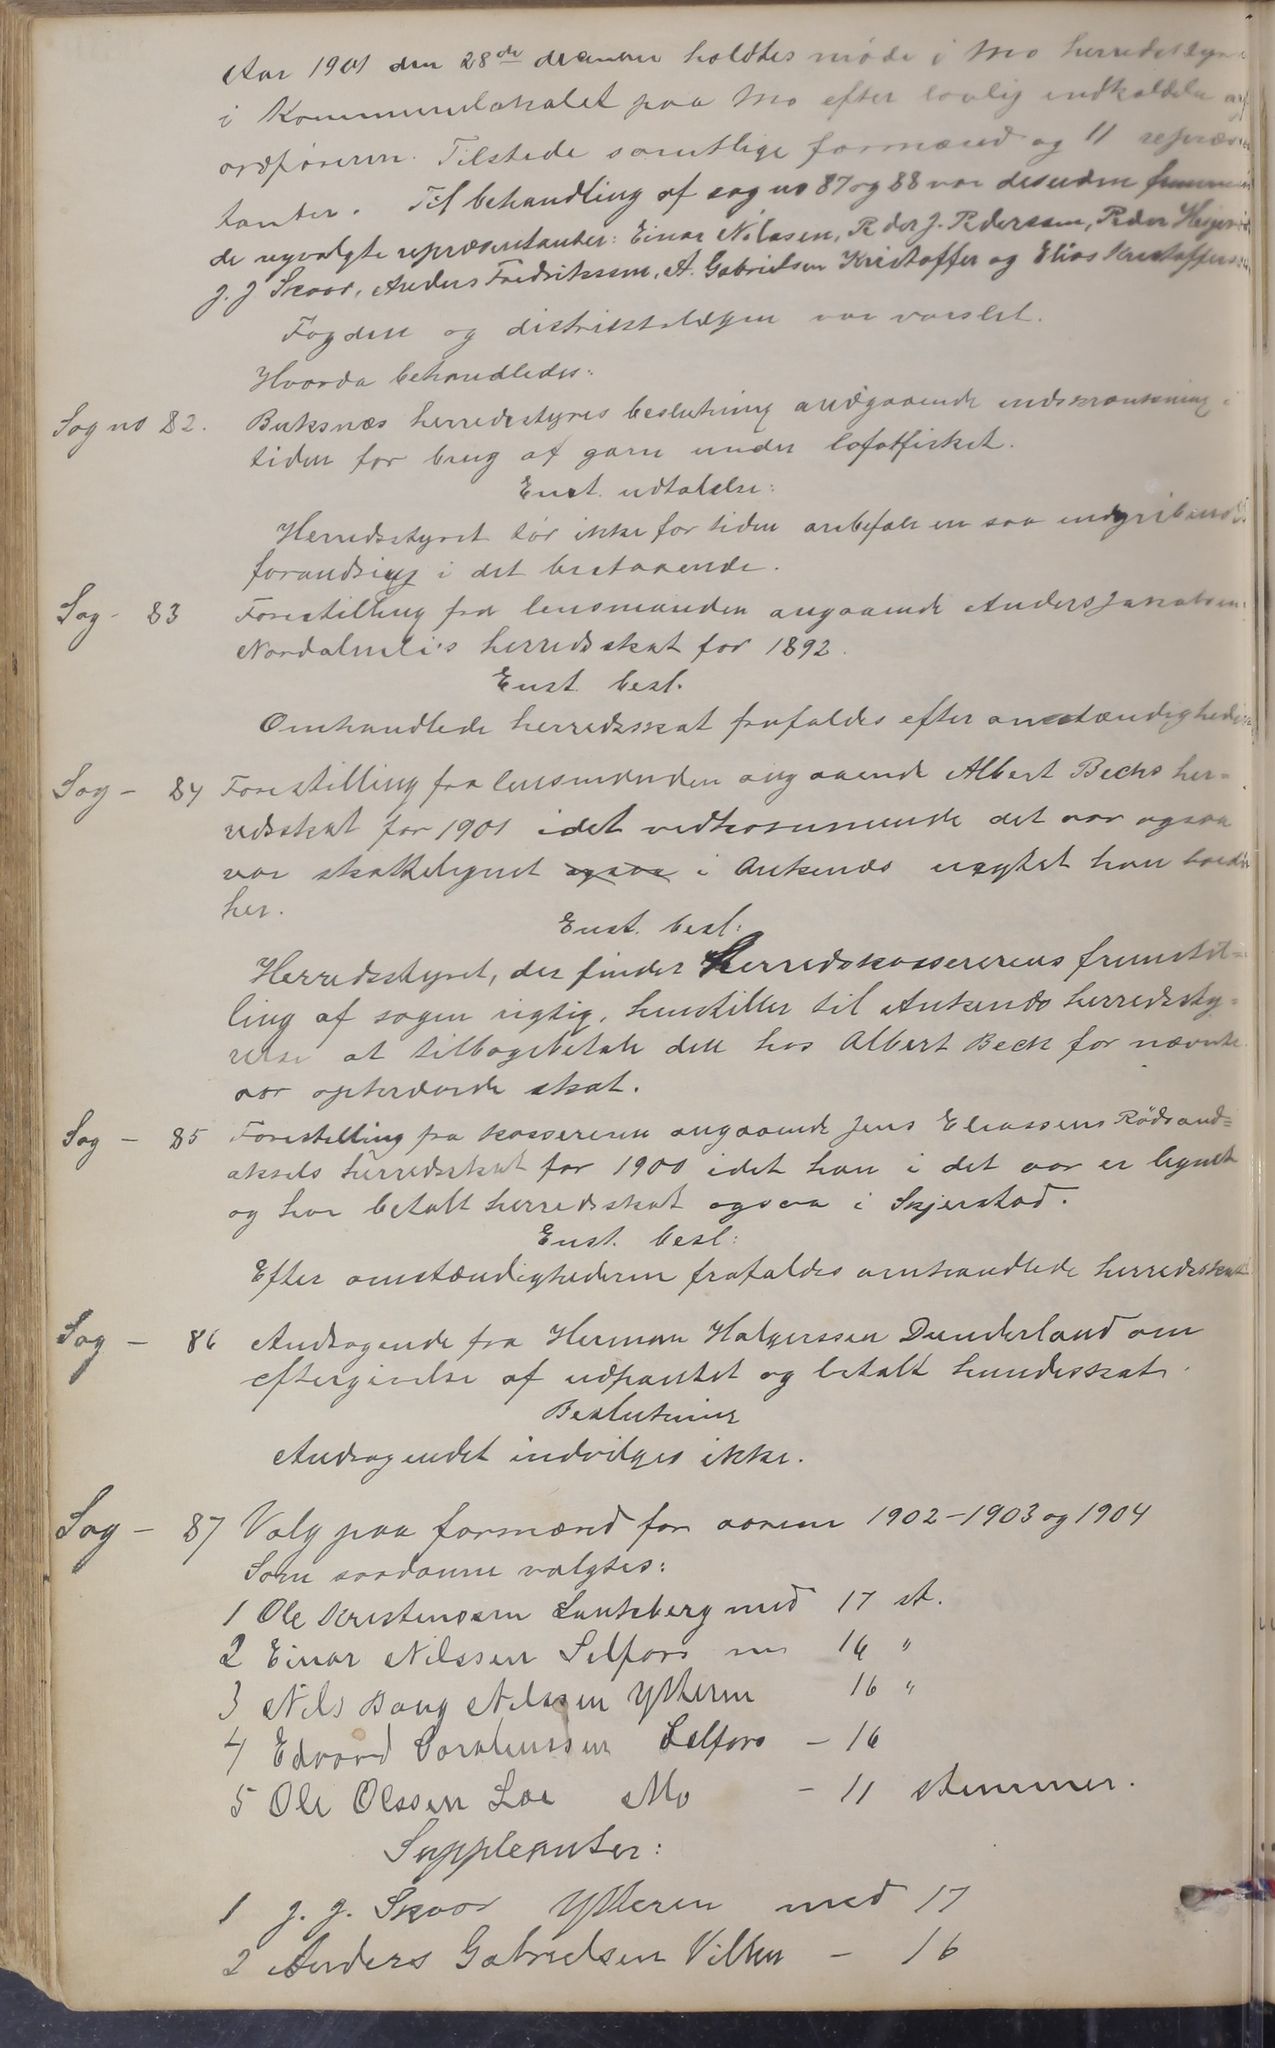 Aar 1901 den 28de december holdtes møde i Mo herredsstyre
i Kommunelokalet paa Mo efter lovlig indkaldelse af
ordføreren. Tilstede samtlige formænd og 11 repræsen
tanter. Til behandling af sag no 87 og 88 var desuden
de nyvalgte repræsentanter: Einar Nilssen, Peder J. Pederssen, Peder
J. J Skaar, Anders Fredrikssen, A. Gabrielsen Kristoffer og Elias Kristofferssen
Fogden og distriktslægen var varslet.
Hvorda behandledes:
Sag no 82. Buksnæs herredsstyres beslutning andgaaende indskrænkning i
tiden for brug af garn under lofotfisket.
Enst. udtalelse:
Herredsstyret tør ikke for tiden anbefale en saa indgribende
forandring i det bestaaende.
Sag - 83 Forestilling fra lensmanden angaaende Anders Jakobsen
Nordalnli's herredsskat for 1892.
Enst. besl.
Omhandlede herredsskat frafaldes efter omstændighederne
Sag - 84 Forestilling fra lensmanden angaaende Albert Becks her=
redsskat for 1901 idet vedkommende det aar ogsaa
var skattelignet ogsaa i Ankenæs uagtet han boede
her.
Enst. besl:
Herredsstyret, der finder Herredskassererens fremstil=
ling af sagen rigtig, henstiller til Ankenæs herredssty=
relse at tilbagebetale den hos Albert Beck for nævnte
aar opkrævede skat.
Sag - 85 Forestilling fra kassereren angaaende Jens Eliassens Rødsand=
aksels herredsskat for 1900 idet han i det aar er lignet
og har betalt herredsskat ogsaa i Skjerstad.
Enst. besl:
Efter omstændighederne frafaldes omhandlede herredsskat
Sag - 86 Andragende fra Herman Halgerssen Dunderland om
eftergivelse af udpantet og betalt hundeskat.
Beslutning
Andragendet indvilges ikke.
Sag - 87 Valg paa formænd for aarene 1902-1903 og 1904
Som saadanne valgtes:
1 Ole Kristenssen Lantzberg med 17 st.
2 Einar Nilssen Selfors 16 "
3 Nils Bang Nilssen Ytteren 16 "
4 Edvard Selfors - 16
5 Ole Olssen Loe Mo - 11 stemmer.
Suppleanter:
1 J. J. Skaar Ytteren med 17
2 Anders Gabrielsen - 16